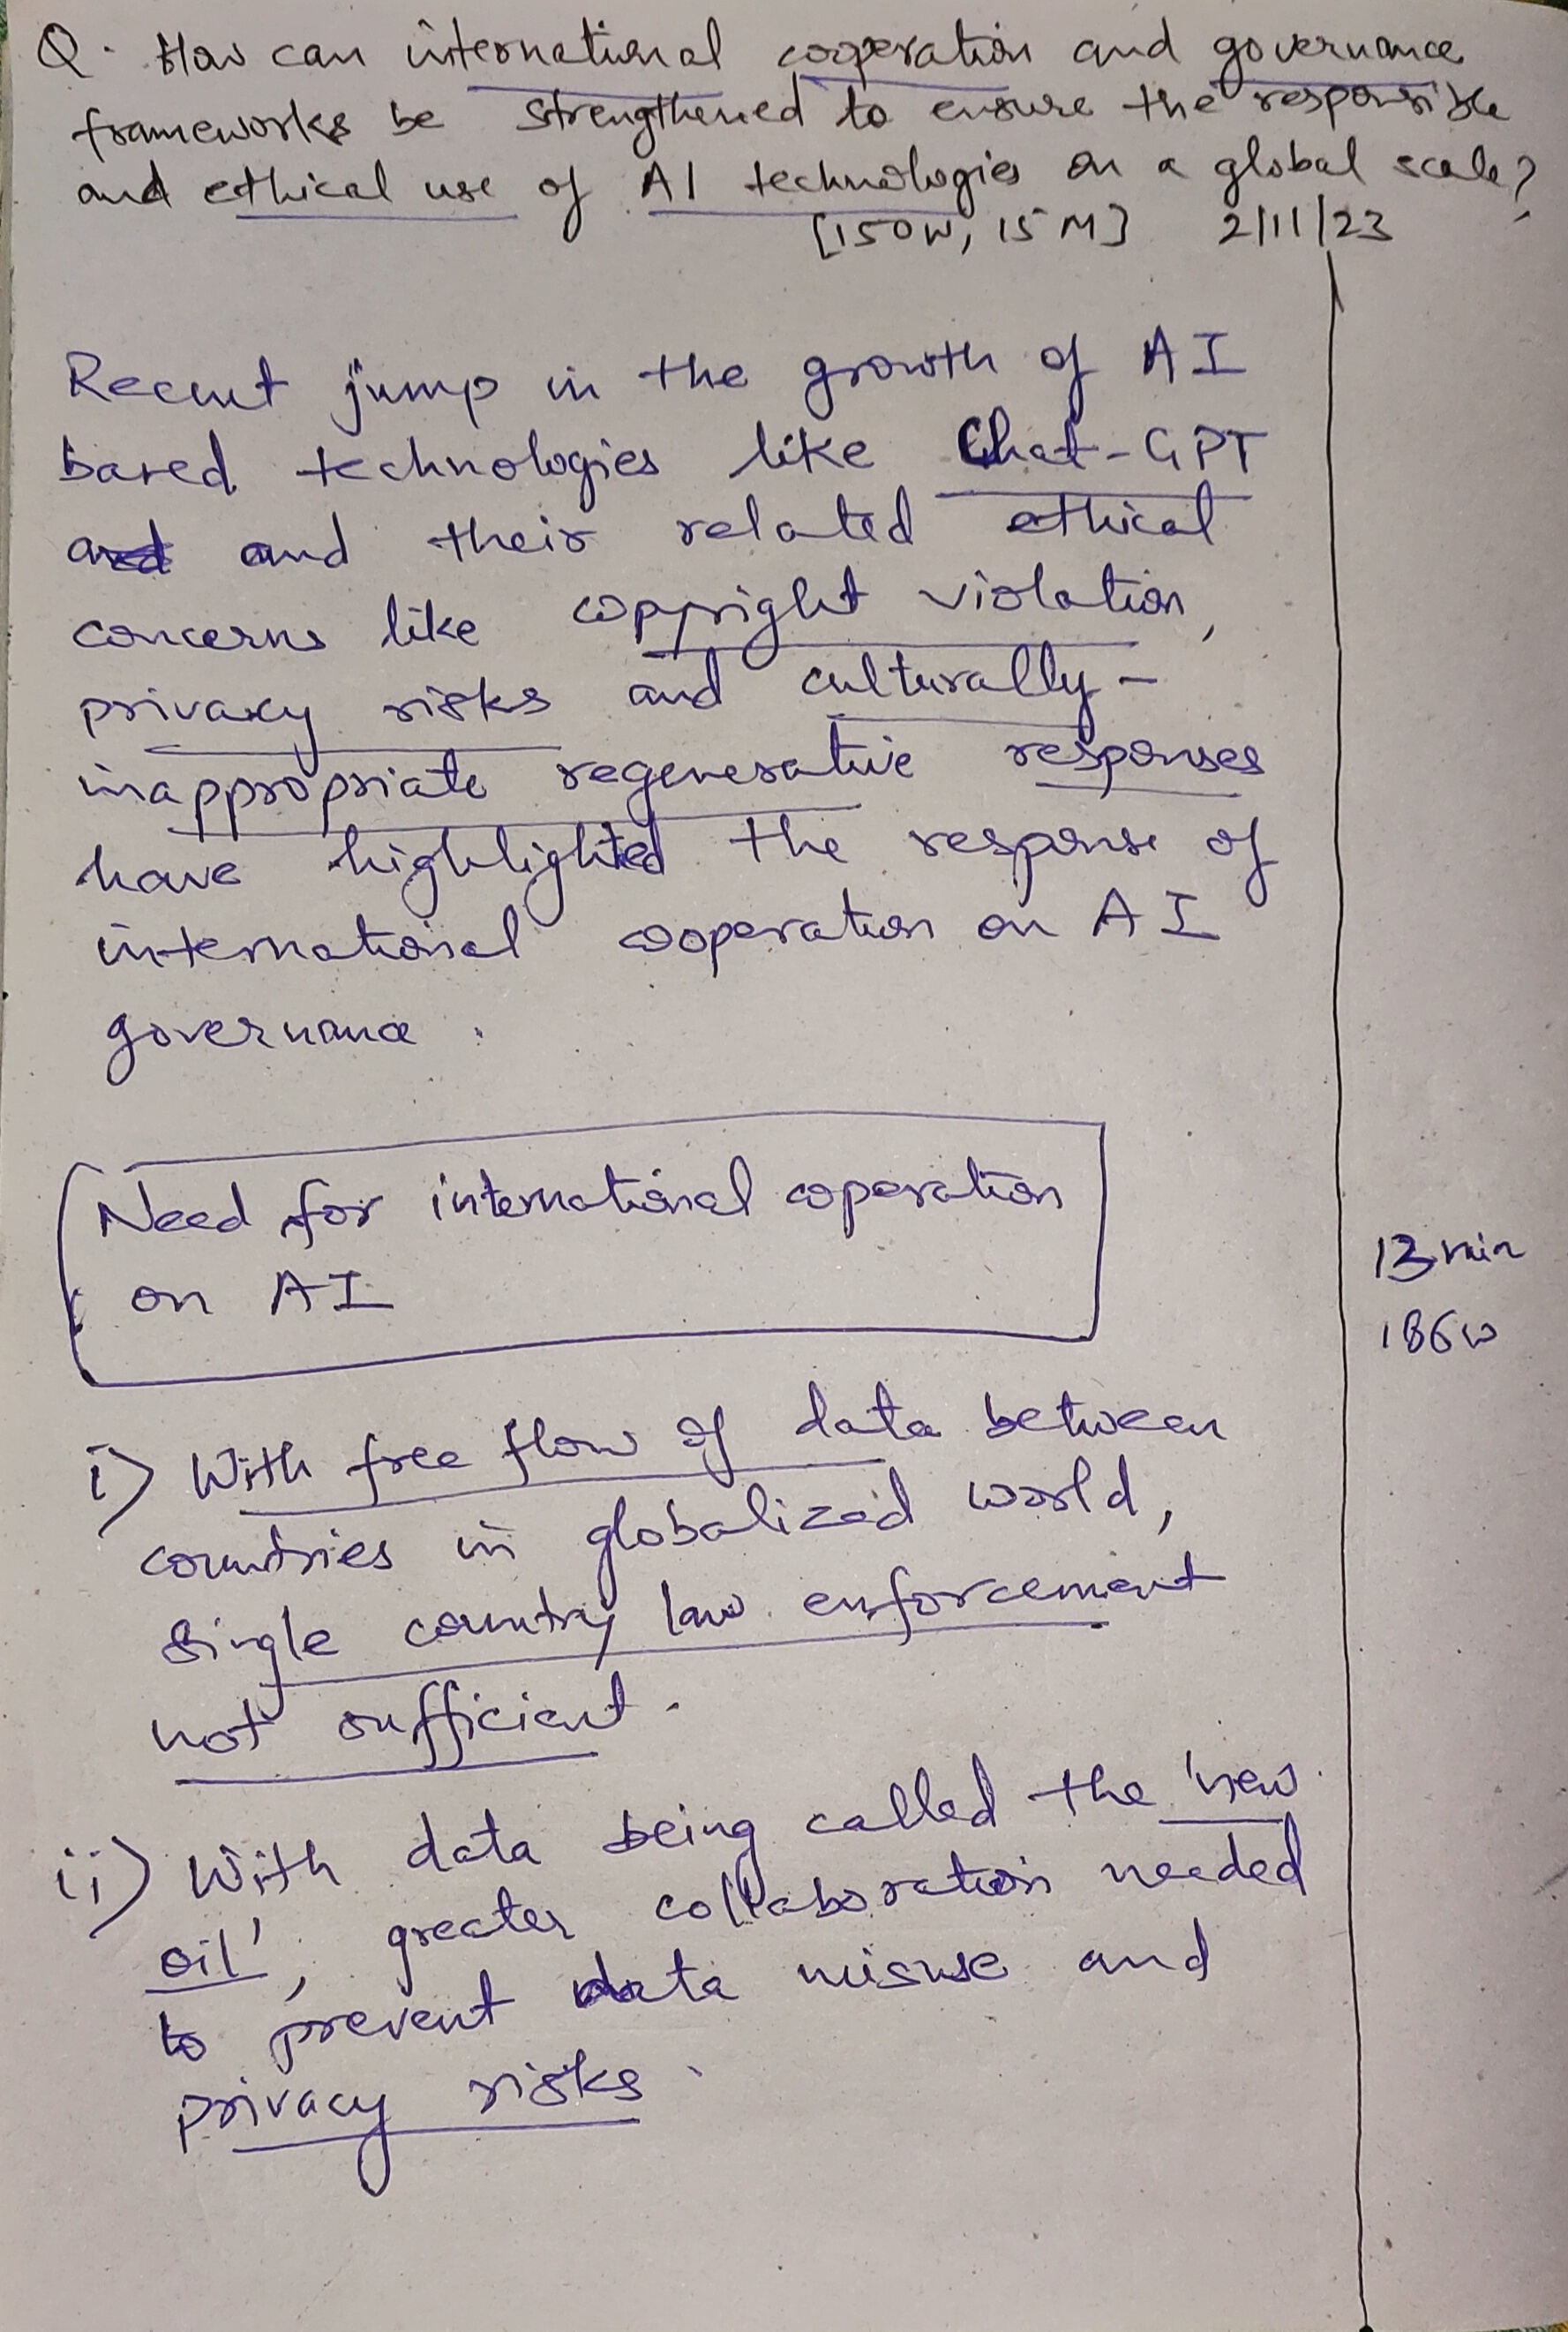 Q. How can international cooperation and governance
frameworks be strengthened to ensure the responsible
and ethical use of AI technologies on a global scale?
[150W, 15M] 2/11/23
Recent jump in the growth of AI
based technologies like Chat-GPT
and their related ethical
concerns like copyright violation,
privacy risks and culturally-
inappropriate regenerative responses
have highlighted the response of
international cooperation on AI
governance.
Need for international coperation
on AI
13 min
186w
i) With free flow of data between
countries in globalized world,
single country law enforcement
not sufficient.
ii) With data being called the 'new
oil', greater collaboration needed
to prevent data misuse and
privacy risks.